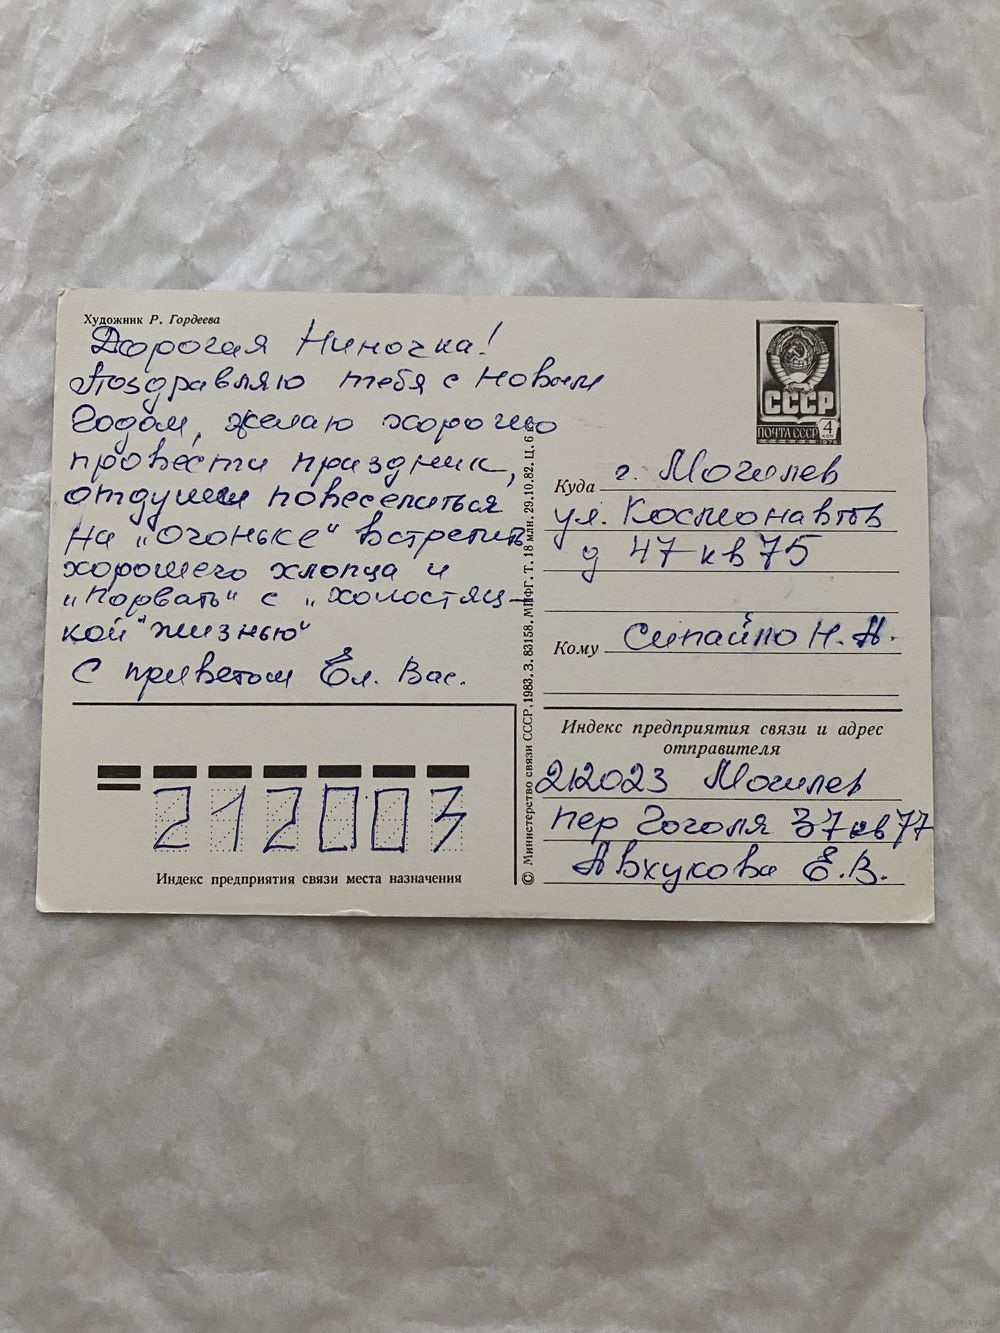 Художник Р. Гордеева
Дорогая Ниночка!
Поздравляю тебя с Новым
Годом, желаю хорошо
провести праздник,
от души повеселиться
на „Огоньке“ встретить
хорошего хлопца и
„порвать“ с „холостяц-
кой "жизнью“
С приветом Ел. Вас.
СССР
ПОЧТА СССР 4 коп
1976
Куда г. Могилев
ул. Космонавтов
д 47 кв 75
Кому Сипайло Н. А.
Индекс предприятия связи и адрес
отправителя
212023 Могилев
пер Гоголя 37 кв 77
Авхукова Е. В.
© Министерство связи СССР, 1983. З. 83158. МПФГ. Т. 18 млн. 29.10.82. Ц. 6 к.
212003
Индекс предприятия связи места назначения